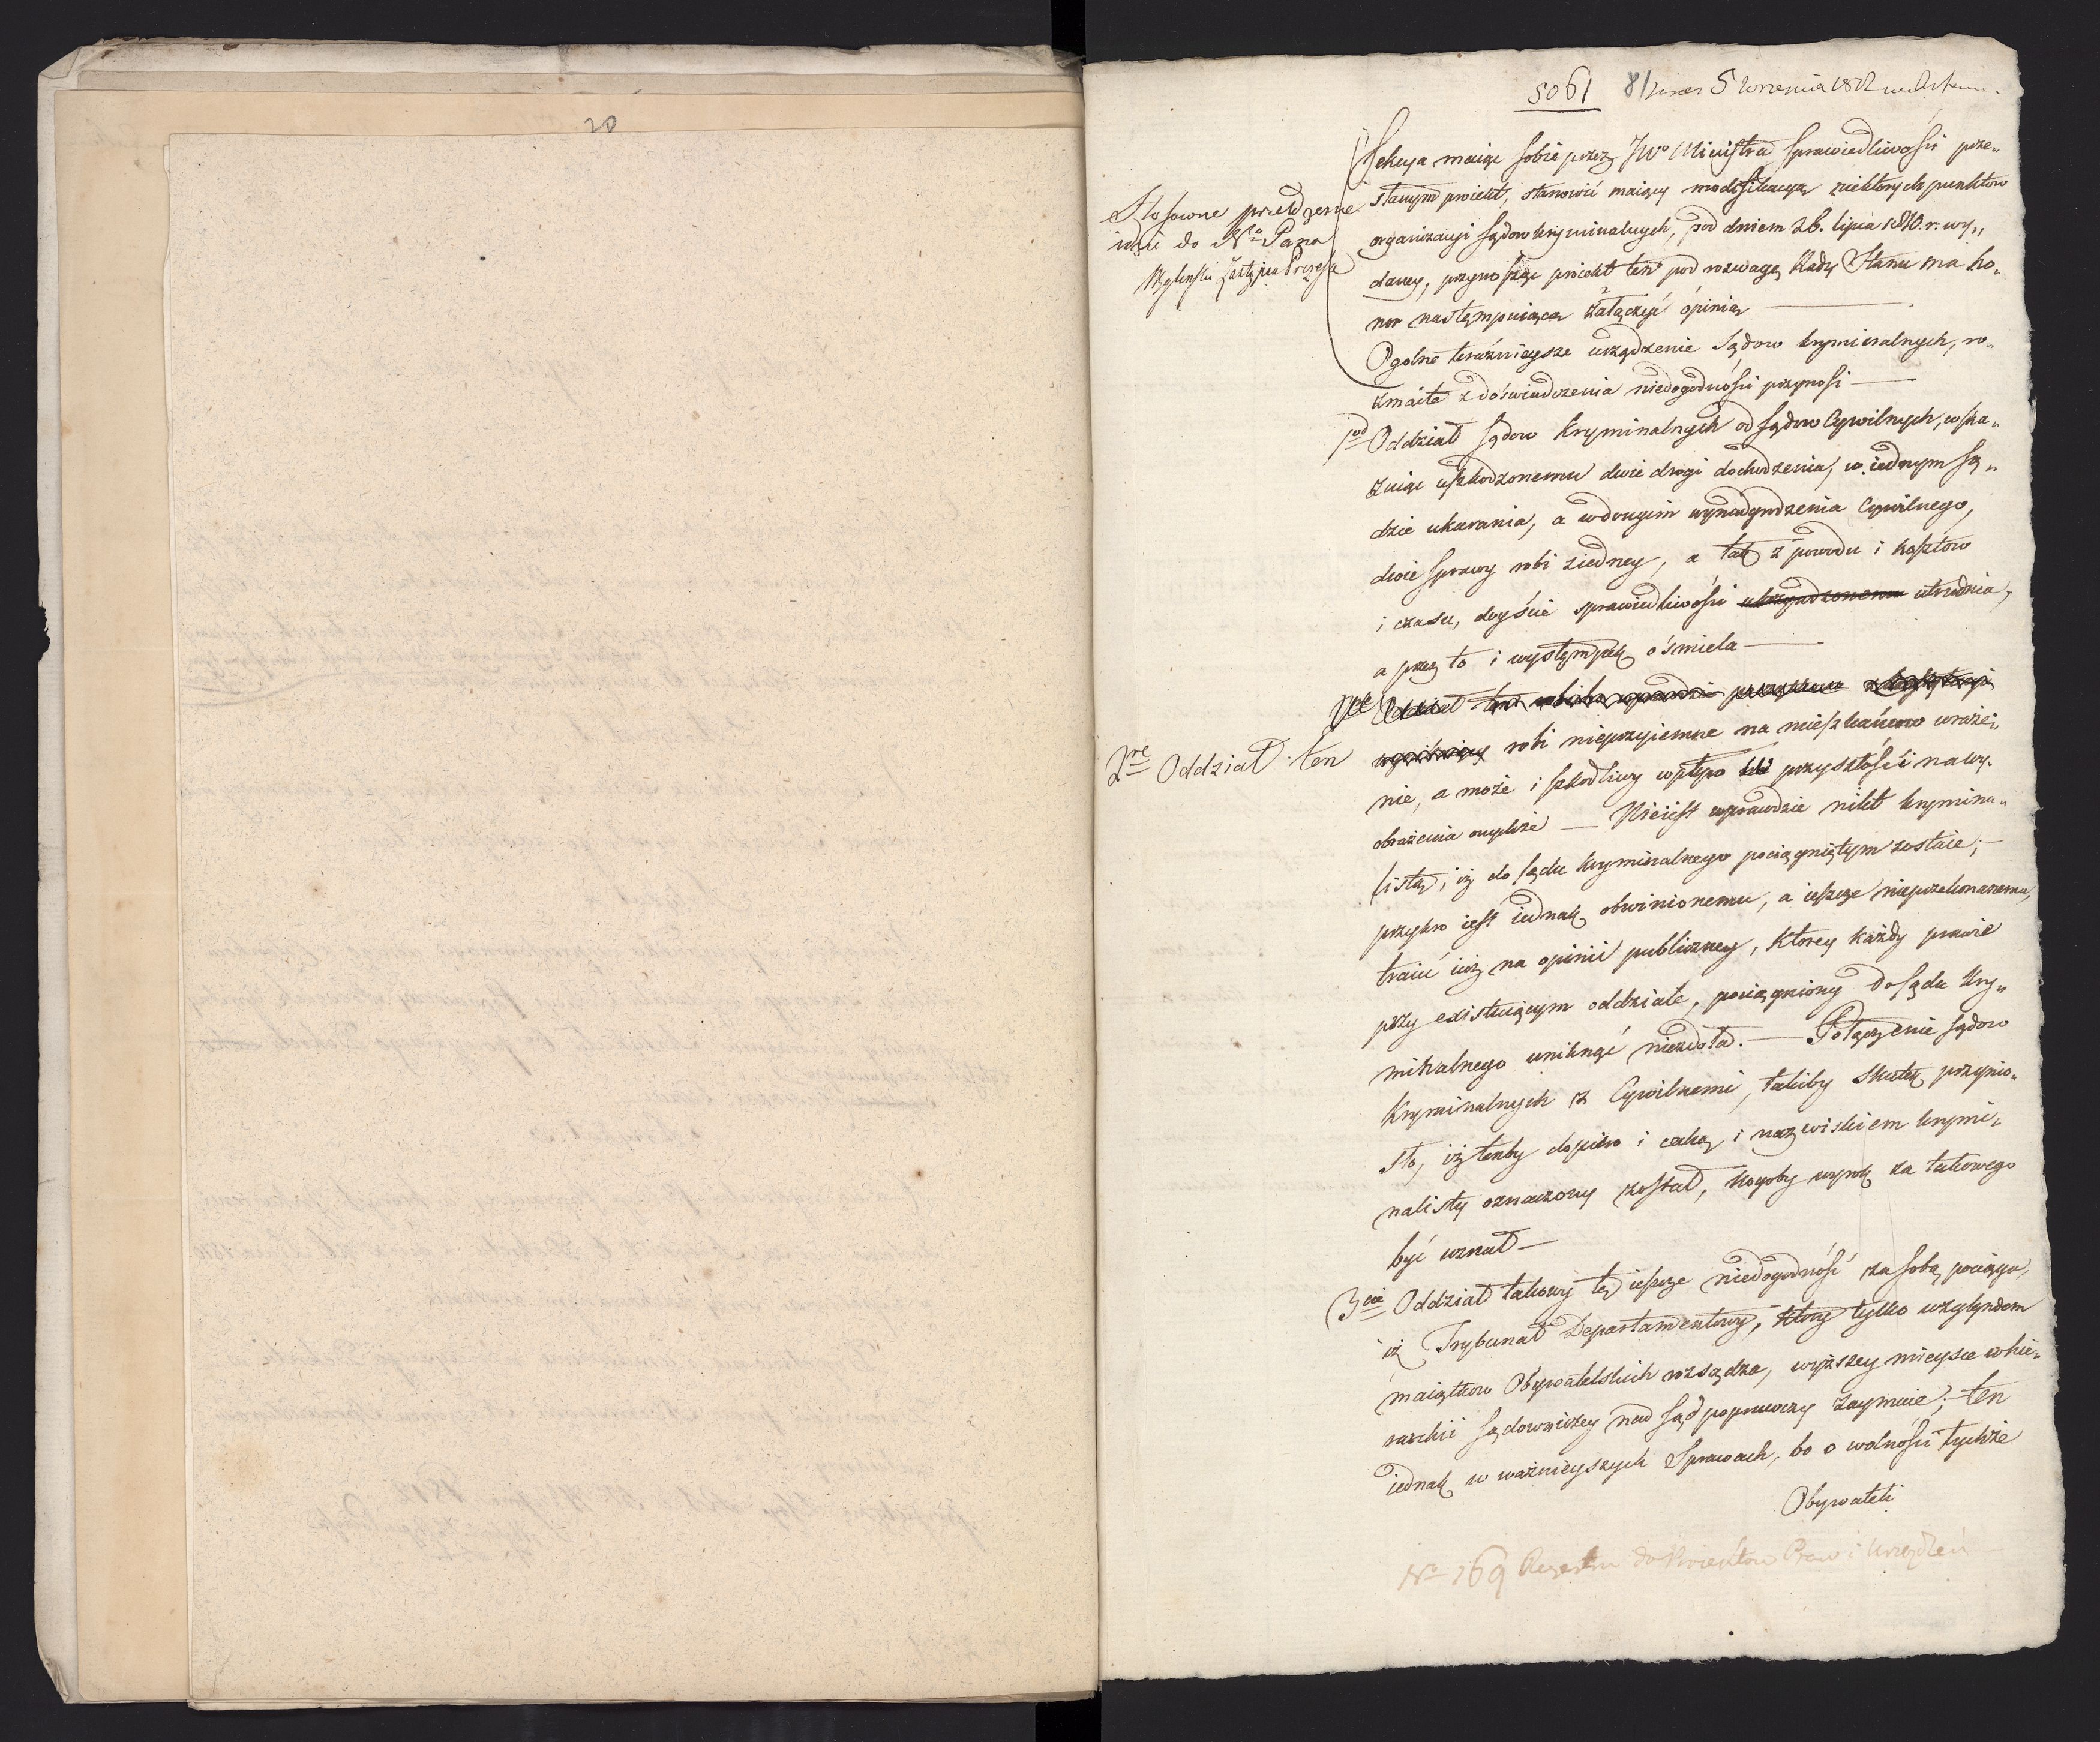 20
5061
5 Wrzesnia 1812
Stosowne przełożenie
idzie do Nº Pana
Zastępca Prezesa
Sekcya maiąc sobie przez JWo Ministra Sprawiedliwości prze„
słanym proiekt, stanowić maiący modyfikacyą niektorych punktow
organizacyi sądow kryminalnych, pod dniem 26. lipca 1810. r. wy„
daney, przynosząc proiekt ten pod rozwagę Rady Stanu ma ho„
nor następuiącą załączyć opinią —
Ogolne teraźnieysze urządzenie Sądow kryminalnych, ro„
zmaite z doświadczenia niedogodności przynosi —
1od Oddział sądow Kryminalnych od sądow Cywilnych, wska„
zuiąc uszkodzonemu dwie drogi dochodzenia, w iednym są„
dzie ukarania, a w drugim wynadgrodzenia Cywilnego,
dwie sprawy robi z iedney, a tak z powodu i kosztow
i czasu, doyście sprawiedliwości ukrzywdzonemu utrudnia,
a przez to i występek ośmiela —
Oddział
2re Oddział ten robi nieprzyiemne na mieszkańcow wraże„
nie, a może i szkodliwy wpływ w przyszłości na wy„
obrażenia onychże — Nieiest wprawdzie nikt krymina„
listą, iż do sądu kryminalnego pociągniętym zostaie; —
przykro iest iednak obwinionemu, a ieszcze nieprzekonanemu,
tracić iuż na opinii publiczney, ktorey każdy prawie
przy existuiącym oddziale, pociągniony do sądu kry„
minalnego uniknąć niezdoła. — Połączenie sądow
Kryminalnych z Cywilnemi, takiby skutek przynio„
sło, iż tenby dopiero i cechą i nazwiskiem krymi„
nalisty oznaczony został, kogoby wyrok za takowego
być uznał —
3cie Oddział takowy tę ieszcze niedogodność za sobą pociąga,
iż Trybunał Departamentowy, ktory tylko względem
maiątkow Obywatelskich rozsądza, wyższey mieysce w hie„
rarchii sądowniczey nad sąd poprawczy zaymuie; — ten
iednak w ważnieyszych Sprawach, bo o wolności tychże
Obywateli
Nº 169 Regestru do Proiektow Praw i Urządzeń